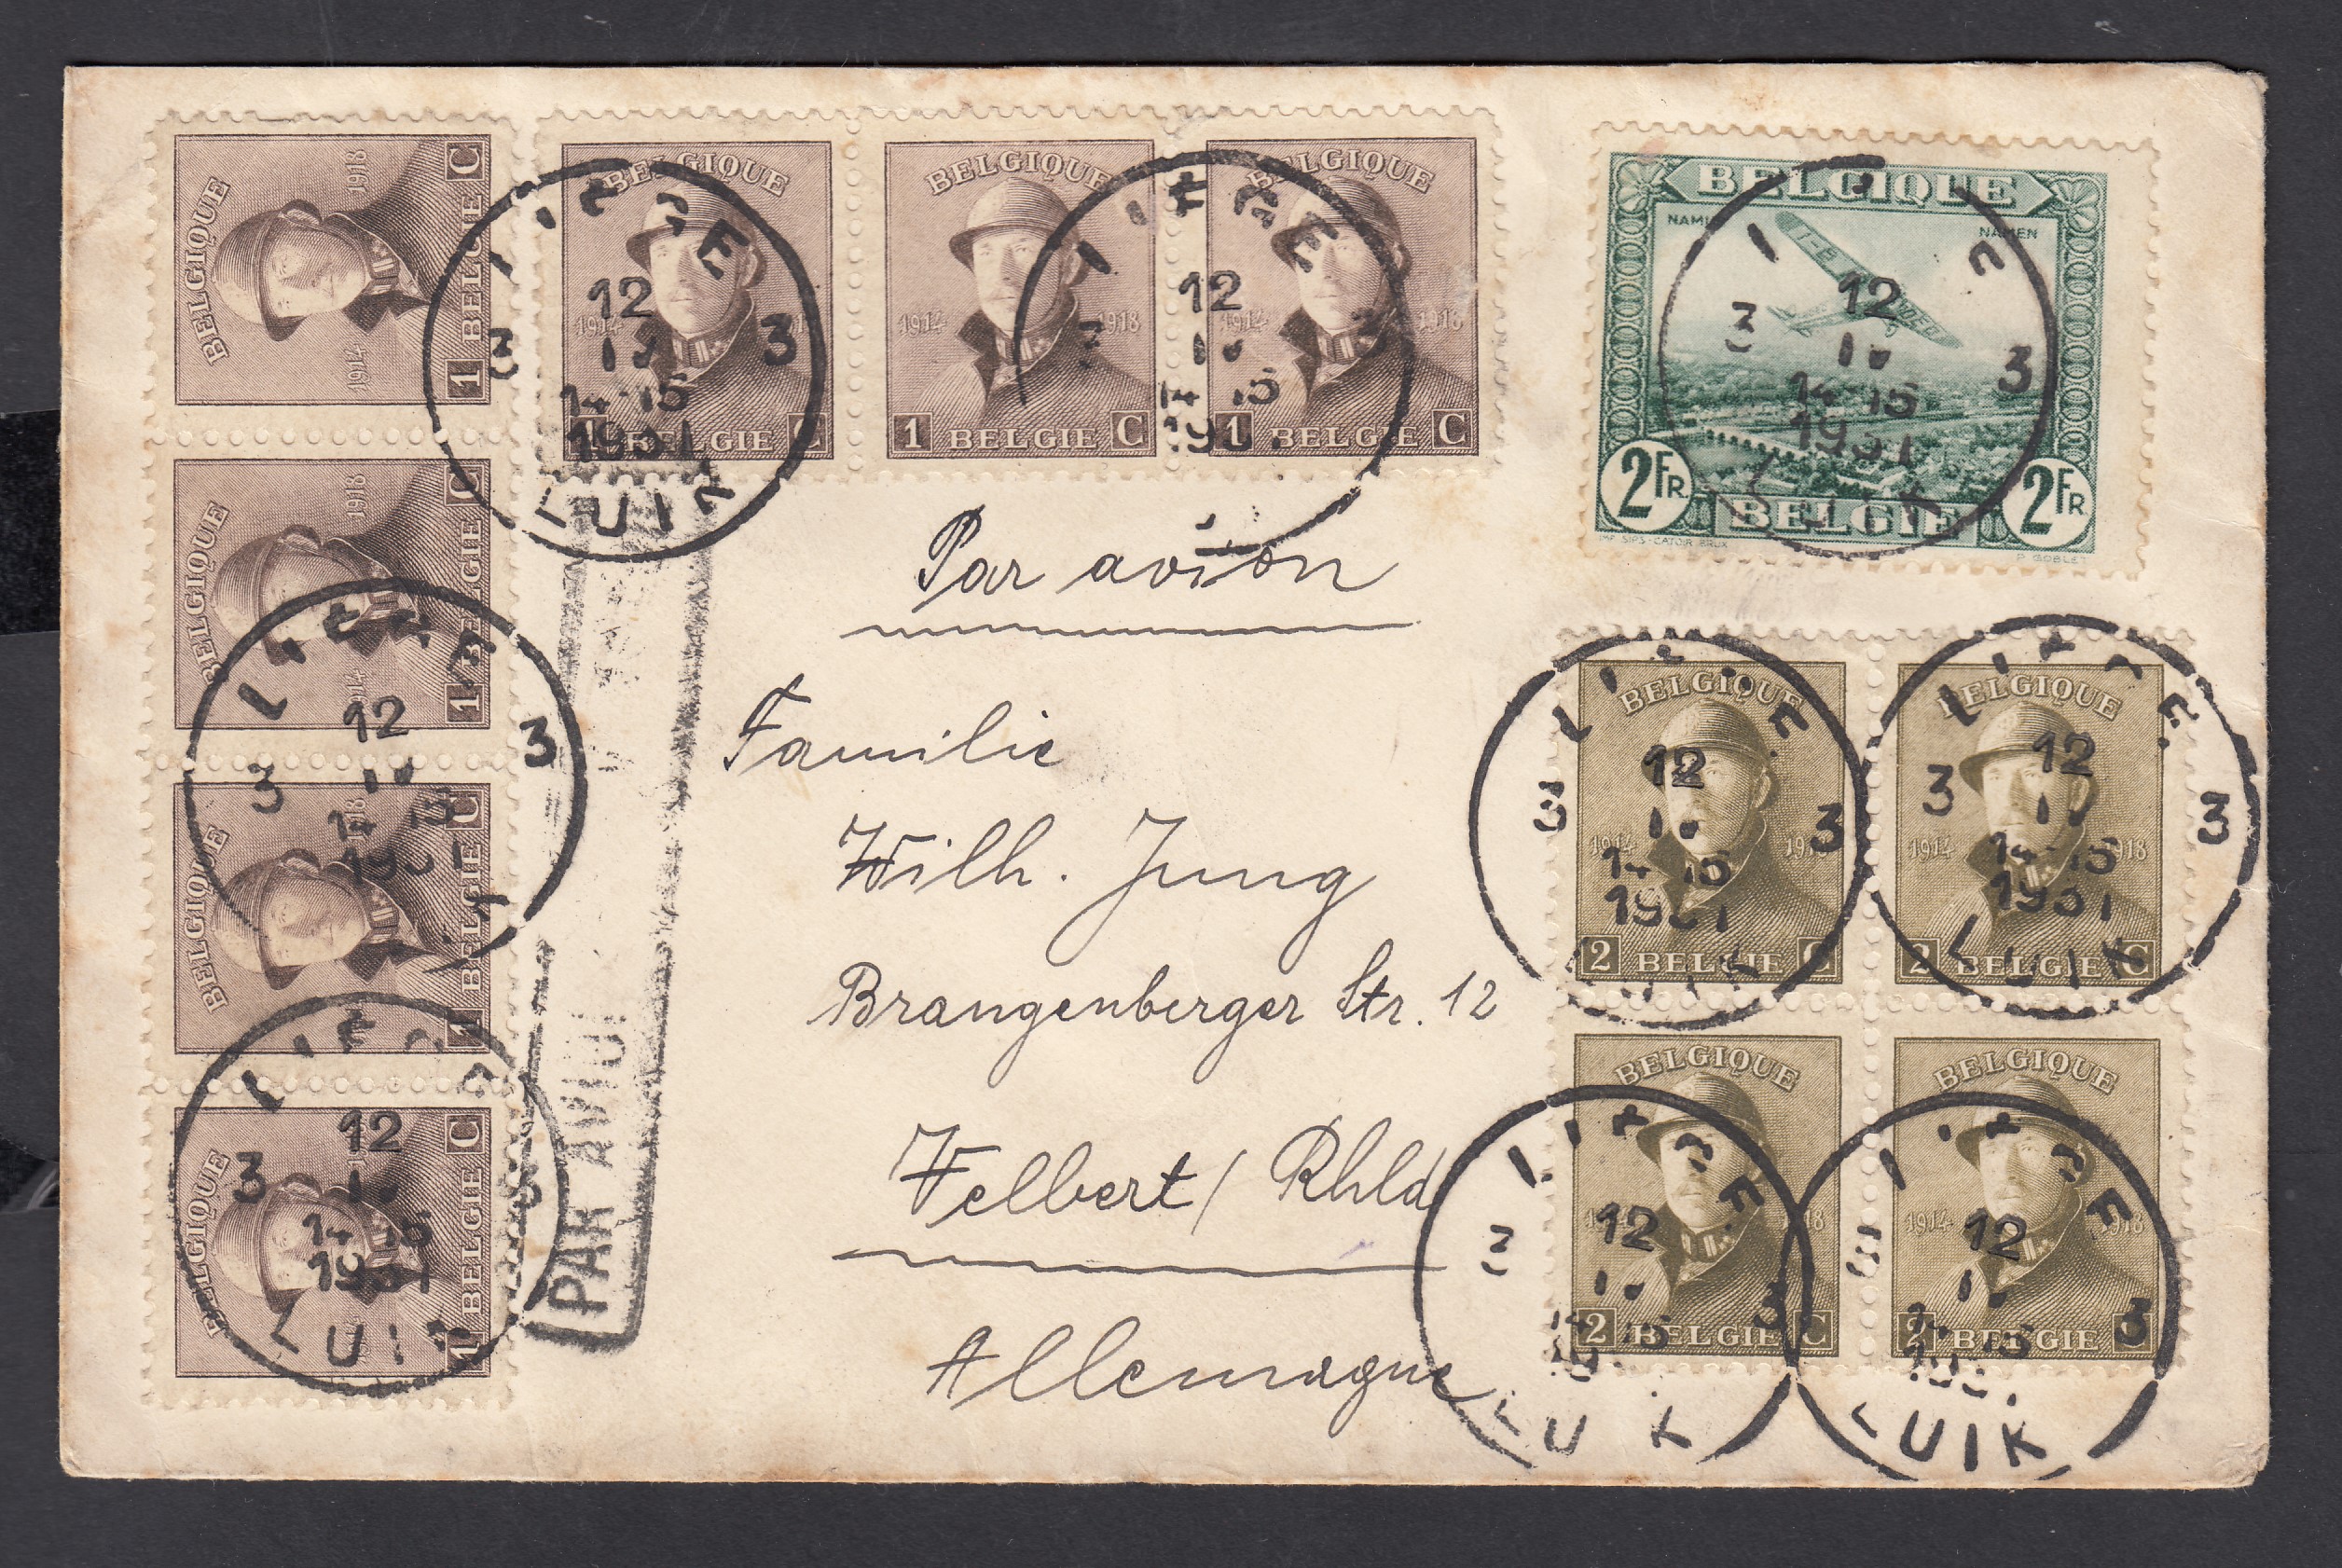 BELGIQUE
1914 1918
1 BELGIE C
BELGIQUE
1914 1918
1 BELGIE C
BELGIQUE
1914 1918
1 BELGIE C
BELGIQUE
1 BELGIE C
BELGIQUE
1914
1 BELGIE C
BELGIQUE
1914 1918
1 BELGIE C
BELGIQUE
1914 1918
1 BELGIE C
BELGIQUE
NAMEN
2 FR BELGIE 2 FR
IMP SIPS-CATOIR BRUX P. GOBLET
LIEGE
3 12 3
14-15
1931
LUIK
Par avion
Familie
Wilh. Jung
Brangenberger Str. 12
Velbert / Rhld
Allemagne
PAR AVION
BELGIQUE
1914 1918
2 BELGIE C
BELGIQUE
1914 1918
2 BELGIE C
BELGIQUE
1914 1918
2 BELGIE C
BELGIQUE
1914 1918
2 BELGIE C